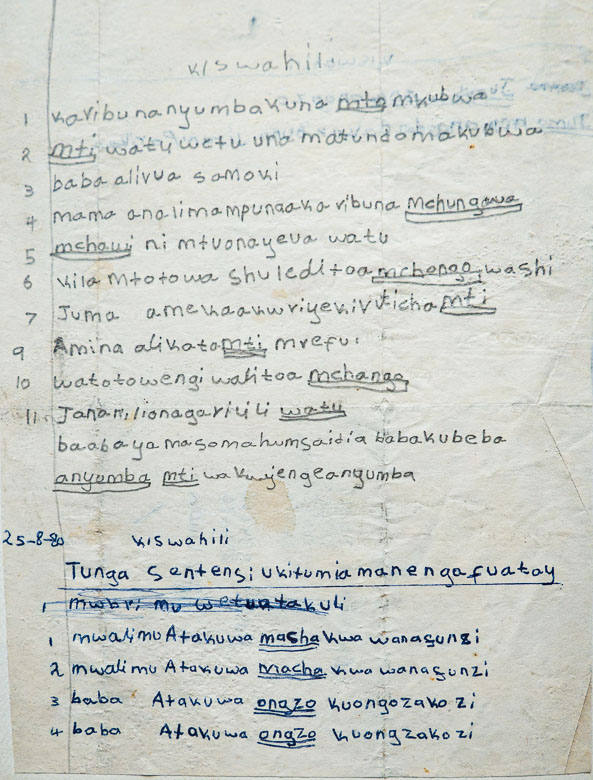 Kiswahili
1 Karibunanyumbakuna mto mkubwa
2 mti watu wetu una matundomakubwa
3 baba alivua samaki
4 mama analimampungaaka ribuna mchungawa
5 mchawi ni mtuonayeua watu
6 Kila mtotowa shule
7 Juma mti
9 Amina alikata mti mrefu.
10 watotowengi walitoa mchango
11 watu
baabayamasomahumsaidia babakubeba
anyumba mti wakujengeanyumba
25-8-80 Kiswahili
Tunga Sentensi ukitumia manengafuatay
1 mwalimu Atakuwa masha kwa wanagunzi
2 mwalimu Atakuwa macha kwa wanagunzi
3 baba Atakuwa ongzo kuongozako zi
4 baba Atakuwa ongzo kuongzako zi